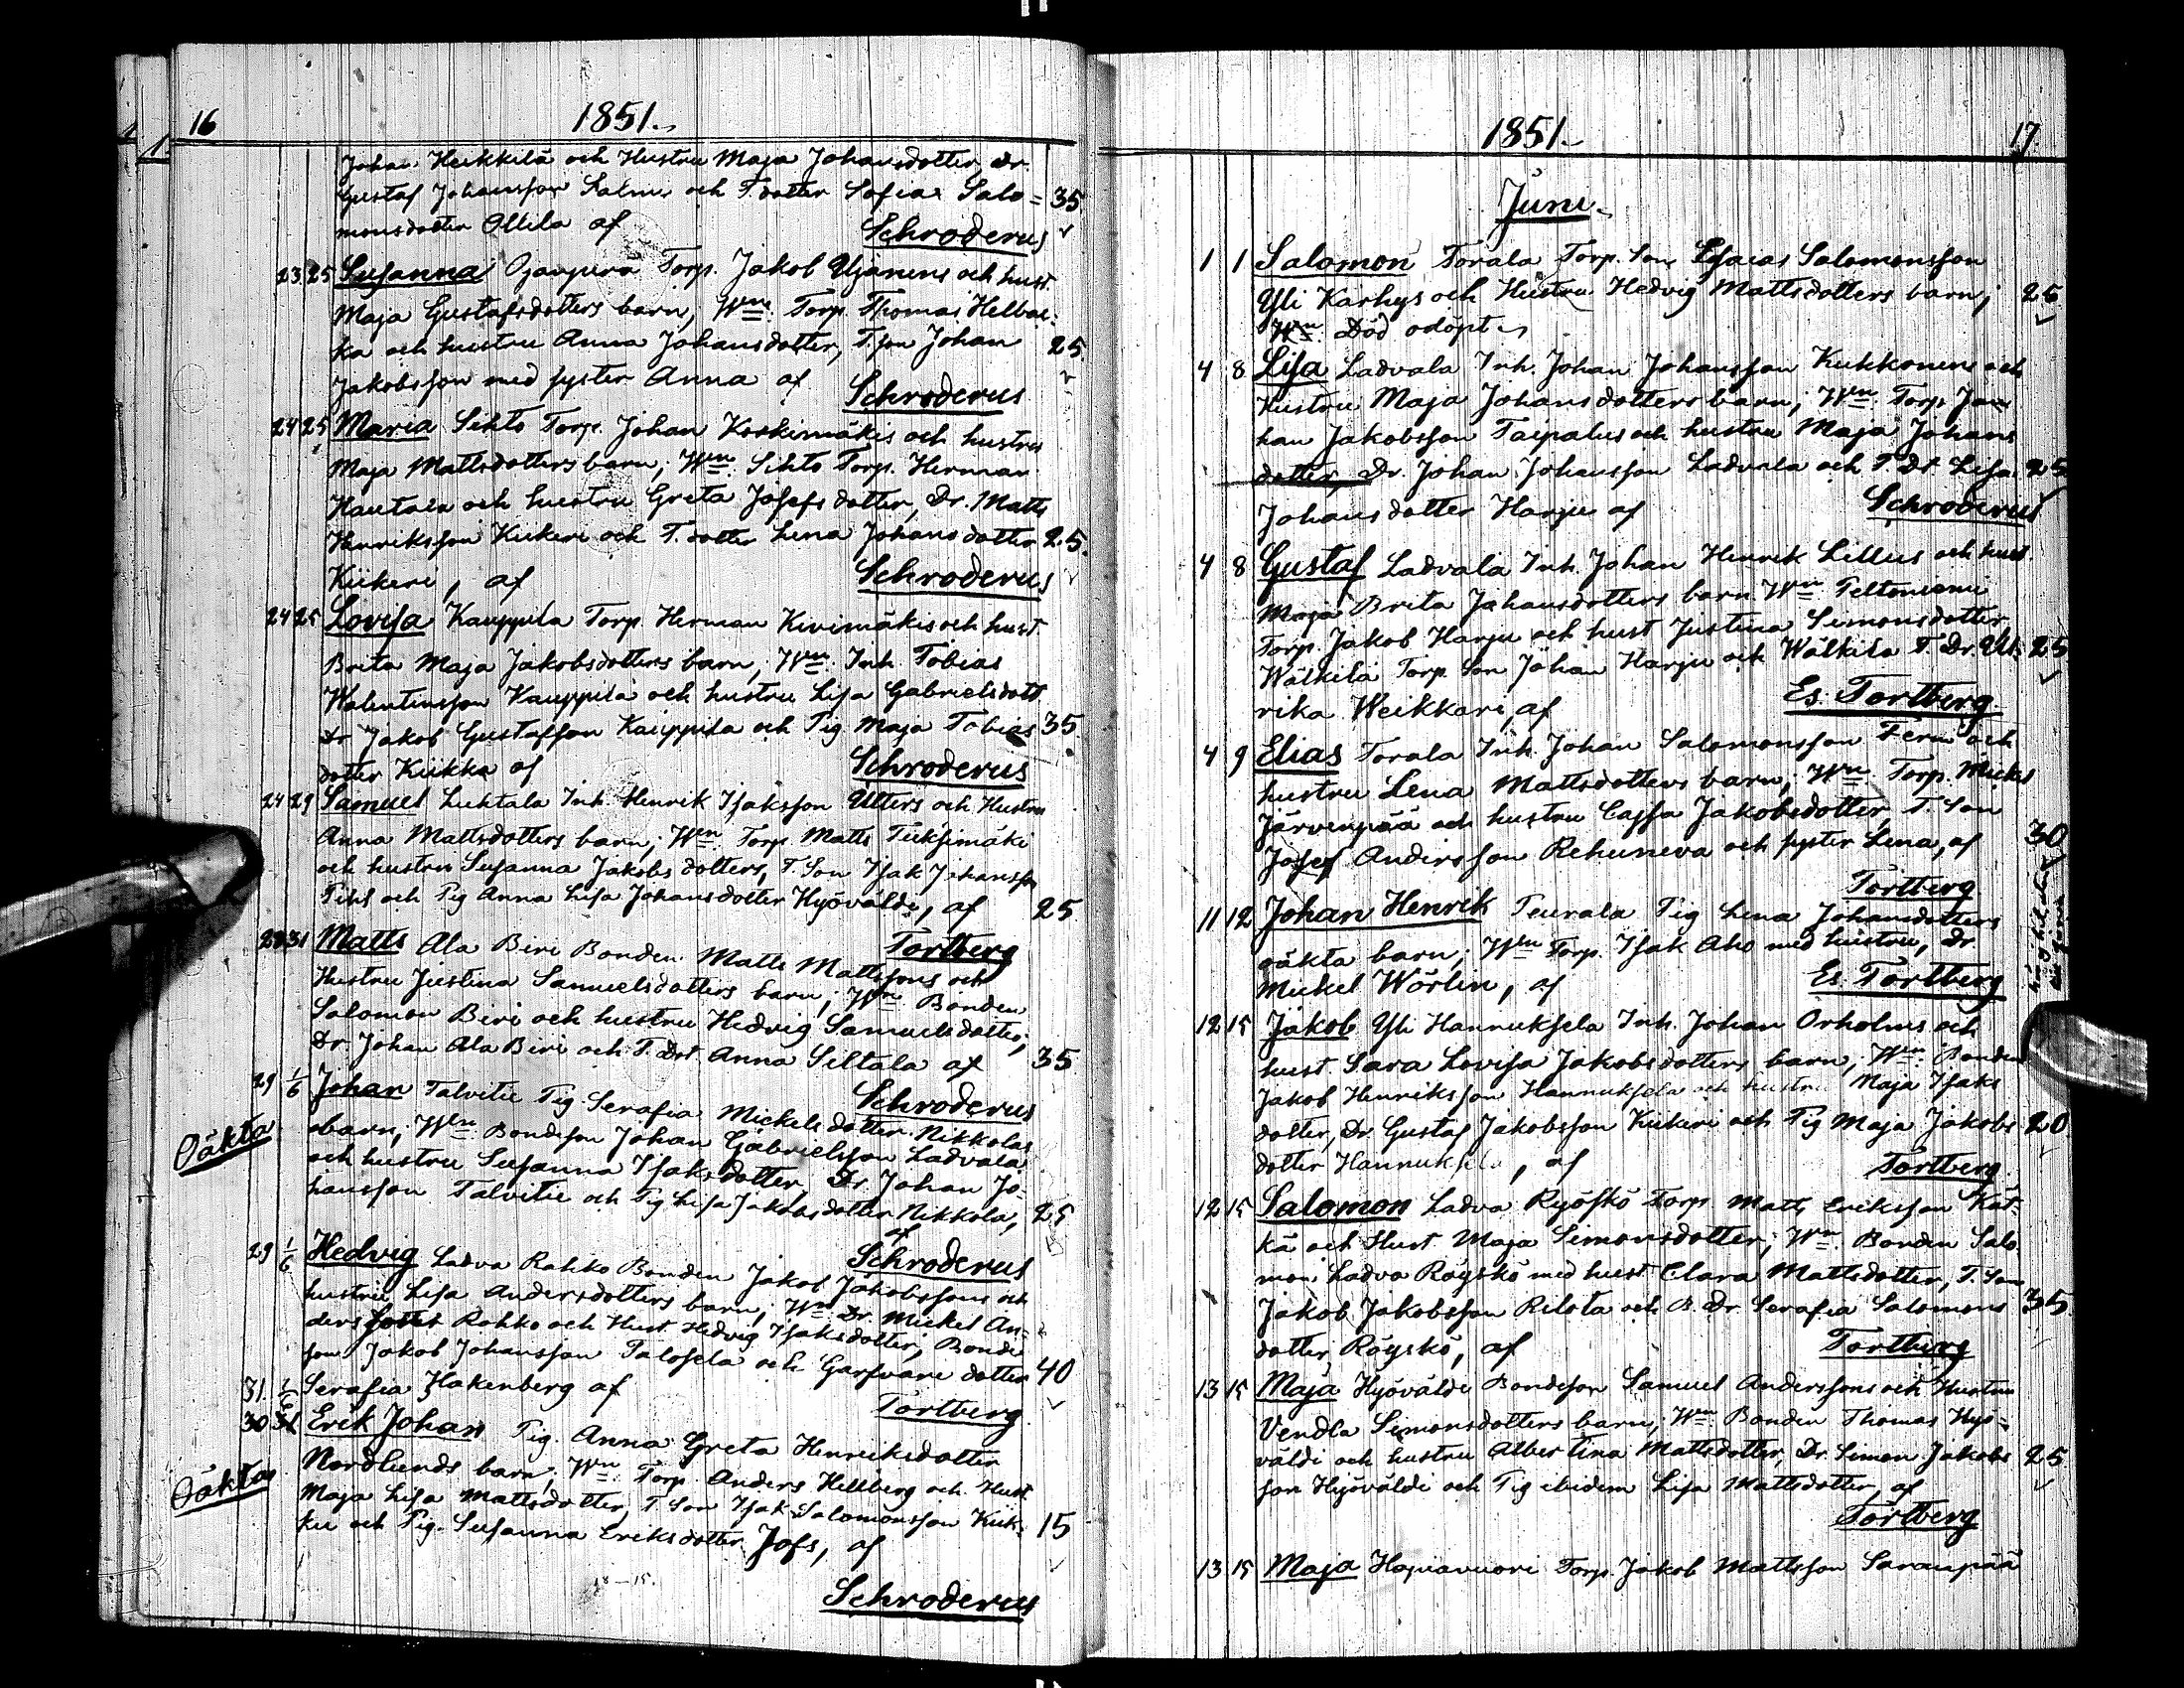 16
1851.
Johan Heikkilä och Hustru Maja Johansdotter, Dr.
Gustaf Johansson Salmi och T. dotter Sofia Salo= 35
monsdotter Ollila af Schroderus
23 25 Susanna Ojanperä Torp. Jakob Ujanens och hust.
Maja Gustafsdotters barn; Wn Torp. Thomas
och hustru Anna Johansdotter, T. son Johan 25
Jakobsson med syster Anna af Schroderus
24 25 Maria Sihto Torp. Johan Koskimäkis och hustru
Maja Mattsdotters barn; Wn Sihto Torp. Herman
Hautala och hustru Greta Josefsdotter, Dr. Matts
Henriksson Kiikeri och T. dotter Lena Johansdotter 25.
Kiikeri, af Schroderus
24 25 Lovisa Kauppila Torp. Herman Kivimäkis och hust.
Brita Maja Jakobsdotters barn; Wn Inh. Tobias
Walentinsson Kauppila och hustru Lisa Gabrielsdott.
Dr Jakob Gustafsson Kauppila och Pig. Maja Tobias 35.
dotter Kiikka af Schroderus
24 29 Samuel Luhtala Inh. Henrik Isaksson Utters och Hustru
Anna Mattsdotters barn; Wn Torp Matts
och hustru Susanna Jakobsdotters, T. Son Isak Johansson
och Pig Anna Lisa Johansdotter Hyövälde, af 25
Tortberg
28 31 Matts Ala Biri Bonden Matts Mattssons och
Hustru Justina Samuelsdotters barn; Wn Bonden
Salomon Biri och hustru Hedvig Samuelsdotter;
Dr. Johan Ala Biri och T. Dot Anna Siltala af 35
Schroderus
29 1/6 Johan Talvitie Pig. Serafia Mickelsdotter Nikkolas
Oäkta barn; Wn Bondeson Johan Gabrielsson Ladvala
och hustru Susanna Isaksdotter, Dr. Johan Jo-
hansson Talvitie och Pig Lisa Jakobsdotter Nikkola, 25
af Schroderus
29 1/6 Hedvig Ladva Rahko Bonden Jakob Jakobssons och
hustru Lisa Andersdotters barn; Wn Dr. Mickel An-
ders Rahko och Hust Hedvig Isaksdotter, Bonde
son Jakob Johansson Palosela och Garfvare dotter 40
Serafia Hakenberg af Tortberg
31. 1/6
30 31 Erik Johan Pig. Anna Greta Henriksdotter
Oäkta Nordlunds barn; Wn Torp. Anders Hellberg och Hust
Maja Lisa Mattsdotter, T. Son Isak Salomonsson Kiik-
ku och Pig. Susanna Eriksdotter, af 15
Schroderus
1851.
17.
Juni.
1 1 Salomon Torala Torp. Son Esaias Salomonsson
Yli Karhys och Hustru Hedvig Mattsdotters barn; 25
Wn Död odöpt
4 8 Lisa Ladvala Inh. Johan Johansson Kukkonens och
Hustru Maja Johansdotters barn; Wn Torp Jo=
han Jakobsson Taipalus och hustru Maja Johans
dotter, Dr. Johan Johansson Ladvala och T. Dr Lisa 25
Johansdotter Harju af Schroderus
4 8 Gustaf Ladvala Inh. Johan Henrik Lillus och hust
Maja Brita Johansdotters barn. Wn Peltoniemi
Torp. Jakob Harju och hust Justina Simonsdotter,
Wälkilä Torp. Son Johan Harju och Wälkilä T. Dr. Ul- 25
rika Weikkari, af Es. Tortberg
4 9 Elias Torala Inh. Johan Salomonsson Ferm och
hustru Lena Mattsdotters barn; Wn Torp. Mickel
Järvenpää och hustru Cajsa Jakobsdotter, T. Son
Josef Andersson Rehuneva och syster Lena, af 30
Tortberg
11 12 Johan Henrik Teurala Pig Lena Johansdotters
oäkta barn; Wn Torp. Isak Aho med hustru, Dr.
Mickel Wörlin, af Es. Tortberg
12 15 Jakob Yli Hannuksela Inh. Johan Orholms och
hust. Sara Lovisa Jakobsdotters barn; Wn Bonden
Jakob Henriksson Hannuksela och hustru Maja Isaks
dotter, Dr. Gustaf Jakobsson Kiikeri och Pig Maja Jakobs 20
dotter Hannuksela, af Tortberg
12 15 Salomon Ladva Ryöskö Torp. Matts Eriksson Kät-
kä och Hust. Maja Simonsdotter; Wn Bonden Salo-
mon Ladva Röyskö med hust. Clara Mattsdotter, T. Son
Jakob Jakobsson Rilota och B. Dr. Serafia Salomons 35
dotter Röyskö, af Tortberg
13 15 Maja Hyövälde Bondeson Samuel Anderssons och Hustru
Vendla Simonsdotters barn; Wn Bonden Thomas Hyö=
väldi och hustru Albertina Mattsdotter, Dr. Simon Jakobs 25
son Hyöväldi och Pig ibidem Lisa Mattsdotter, af
Tortberg
13 15 Maja Hapuavuori Torp. Jakob Mattsson Saranpää